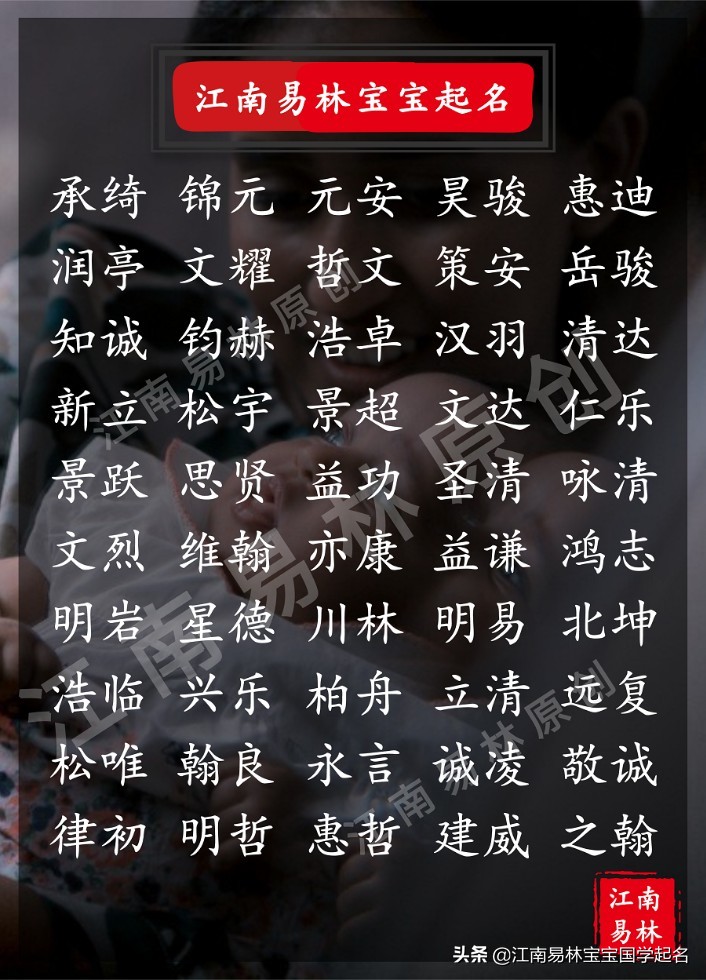 江南易林宝宝起名
承绮 锦元 元安 昊骏 惠迪
润亭 文耀 哲文 策安 岳骏
知诚 钧赫 浩卓 汉羽 清达
新立 松宇 景超 文达 仁乐
景跃 思贤 益功 圣清 咏清
文烈 维翰 亦康 益谦 鸿志
明岩 星德 川林 明易 北坤
浩临 兴乐 柏舟 立清 远复
松唯 翰良 永言 诚凌 敬诚
律初 明哲 惠哲 建威 之翰
江南易林原创
江南易林原创
江南易林原创
江南
易林
头条 @江南易林宝宝国学起名